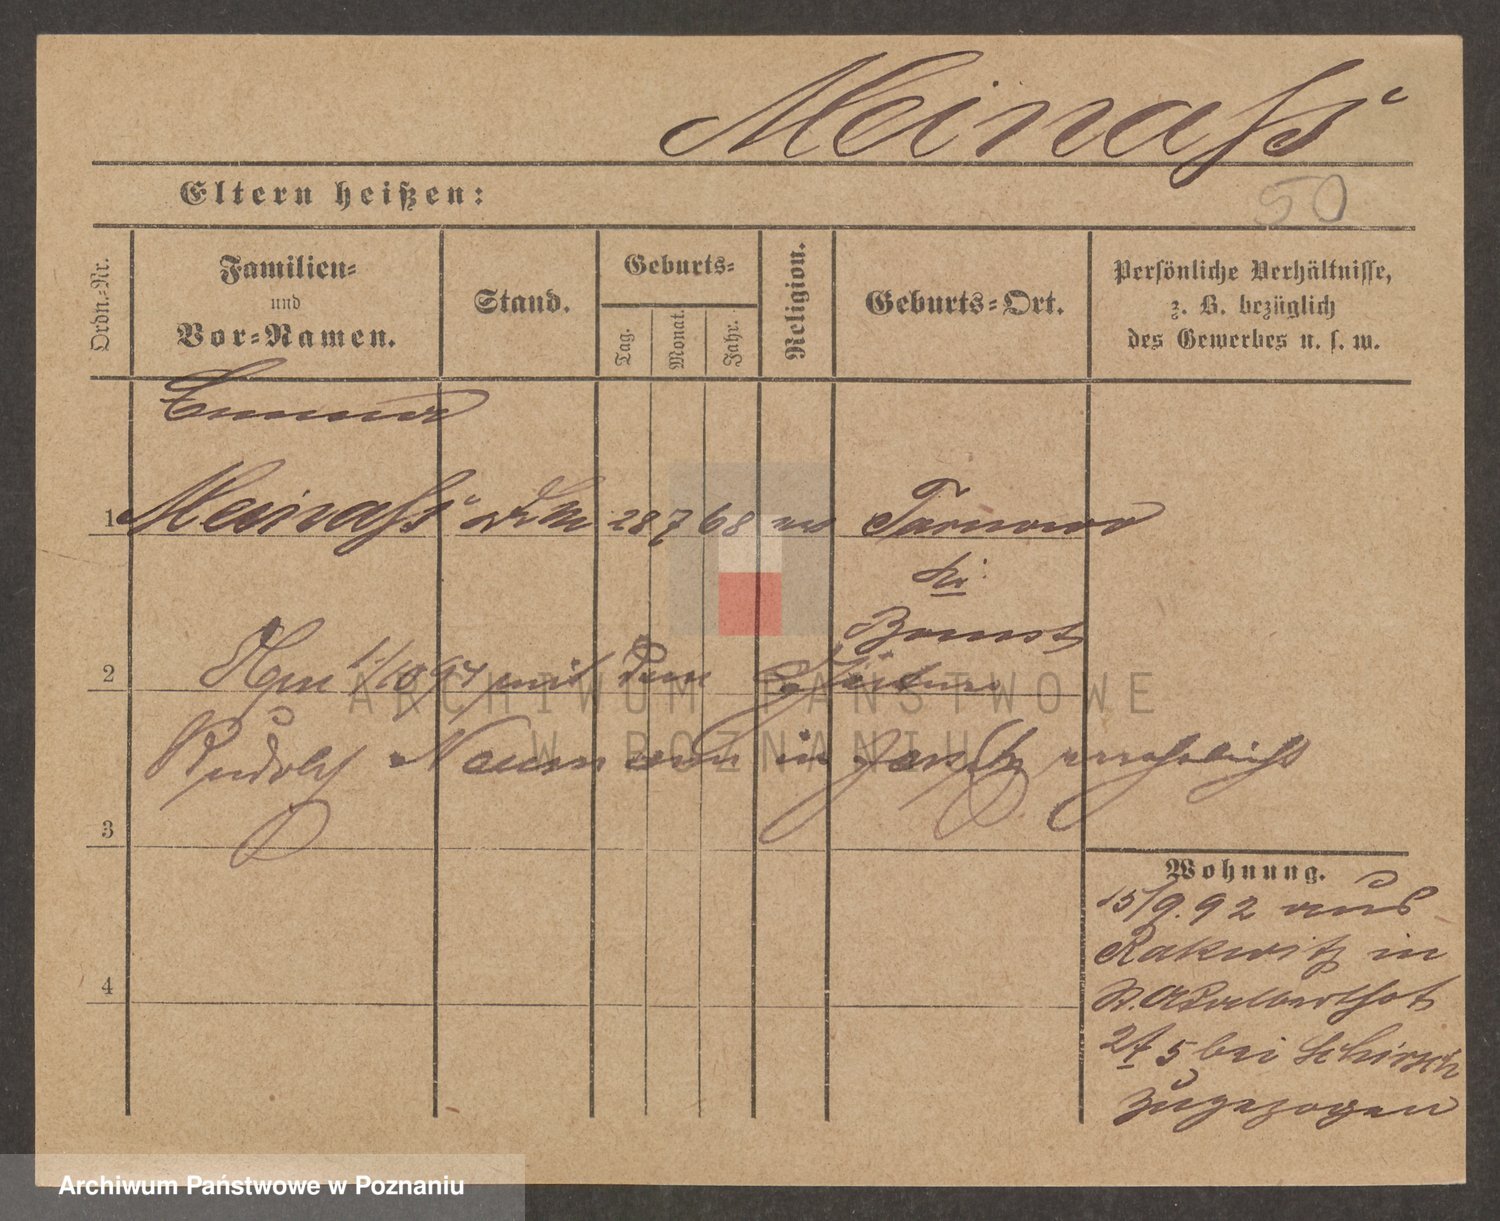 Meinaß
Eltern heißen:
50
Ordn.-Nr.
Familien-
und
Vor-Namen.
Stand.
Geburts-
Tag.
Monat.
Jahr.
Religion.
Geburts-Ort.
Persönliche Verhältnisse,
z. B. bezüglich
des Gewerbes u. s. w.
Emma
1 Meinaß 28 7 68 ev Tarnowo
Kr.
Bomst
2 1/10 94 mit dem Gärtner
Rudolf Naumann in verehelicht
3
Wohnung.
15/9. 92 aus
Rakwitz in
St. Adalberthof
4
5 bei Schirsch
zugezogen
ARCHIWUM PAŃSTWOWE
W POZNANIU
Archiwum Państwowe w Poznaniu